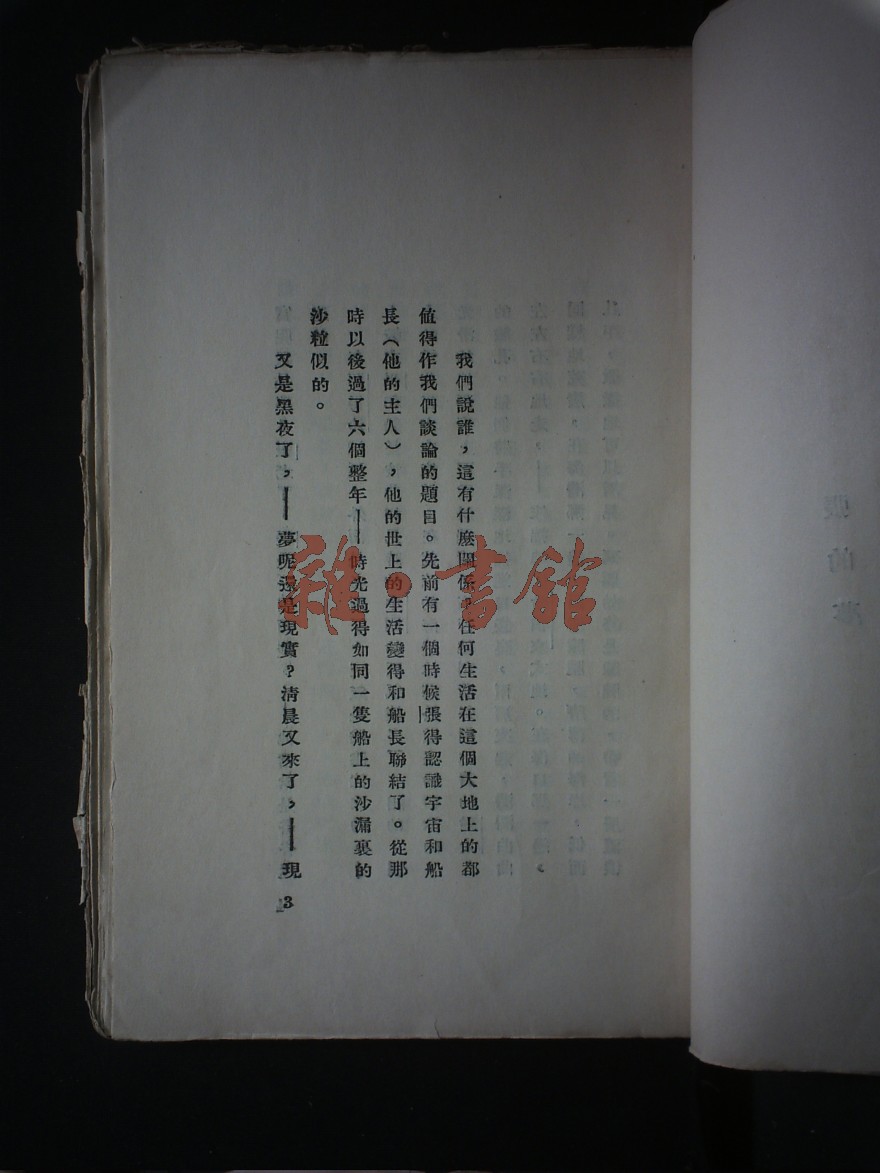 我們說誰，這有什麽關係？任何生活在這個大地上的都
值得作我們談論的題目。先前有一個時候張得認識宇宙和船
長（他的主人），他的世上的生活變得和船長聯結了。從那
時以後過了六個整年——時光過得如同一隻船上的沙漏裏的
沙粒似的。
又是黑夜了，——夢呢還是現實？清晨又來了，——現
3
雜·書館